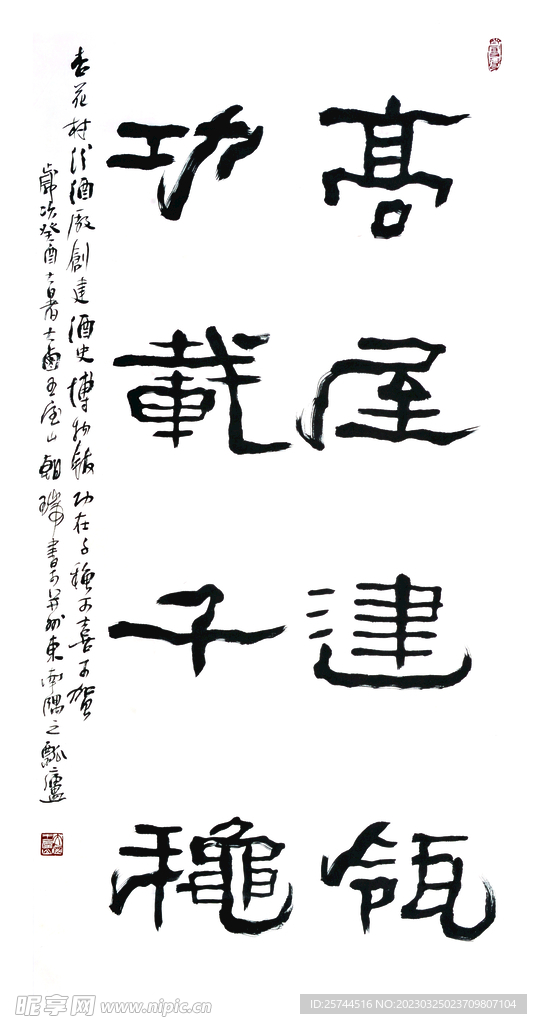 高屋建瓴
功載千穐
杏花村汾酒廠創建酒史博物館功在千穐可喜可賀
歲次癸酉大暑大鹵王屋山朝瑞書于并州東南隅之瓢廬
昵享网 www.nipic.cn
ID:25744516 NO:20230325023709807104